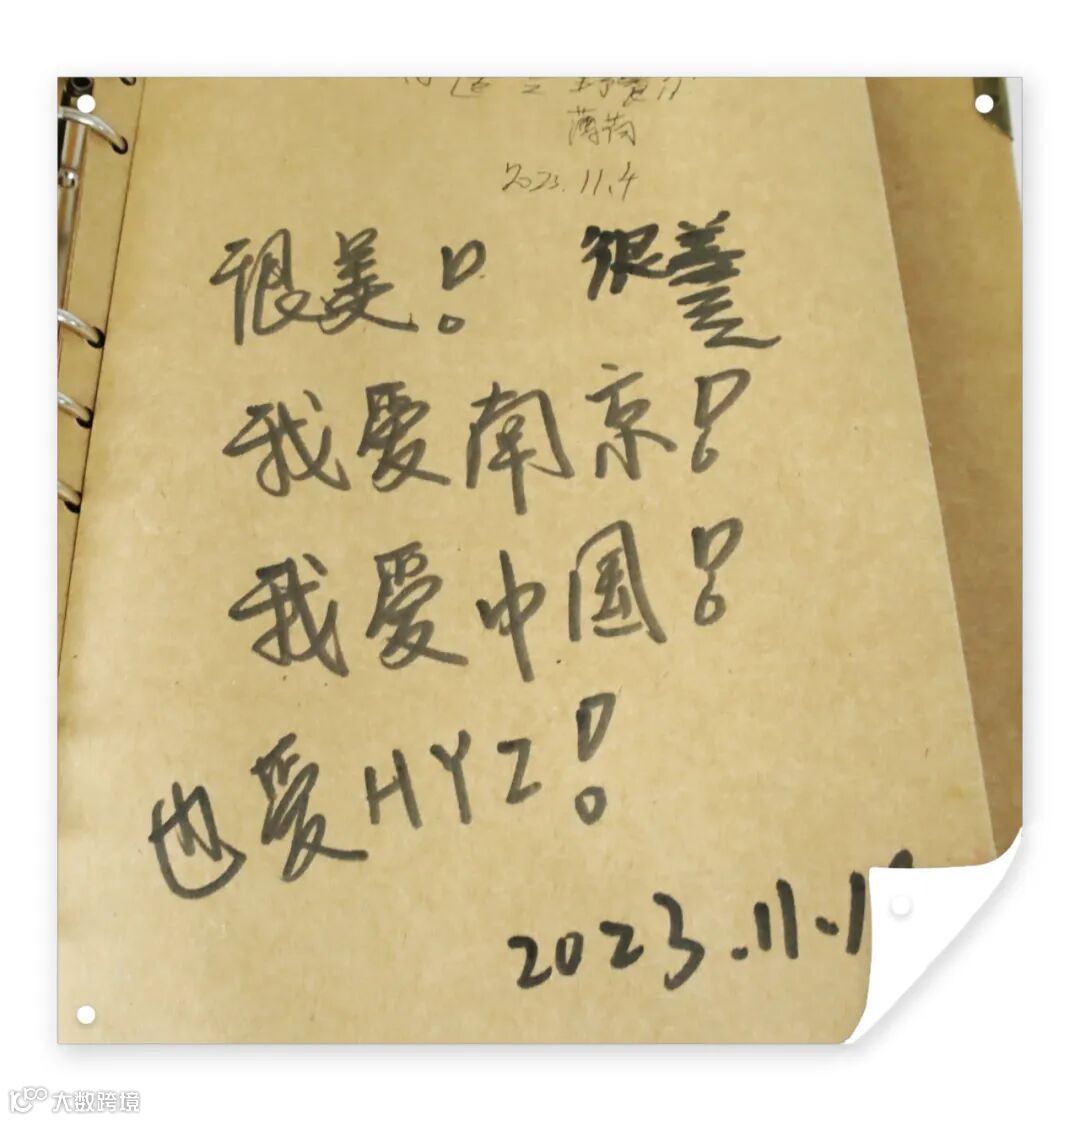 薄荷
2023.11.4
很美! 很美
我爱南京!
我爱中国!
也爱HYZ!
2023.11.1
大数跨境